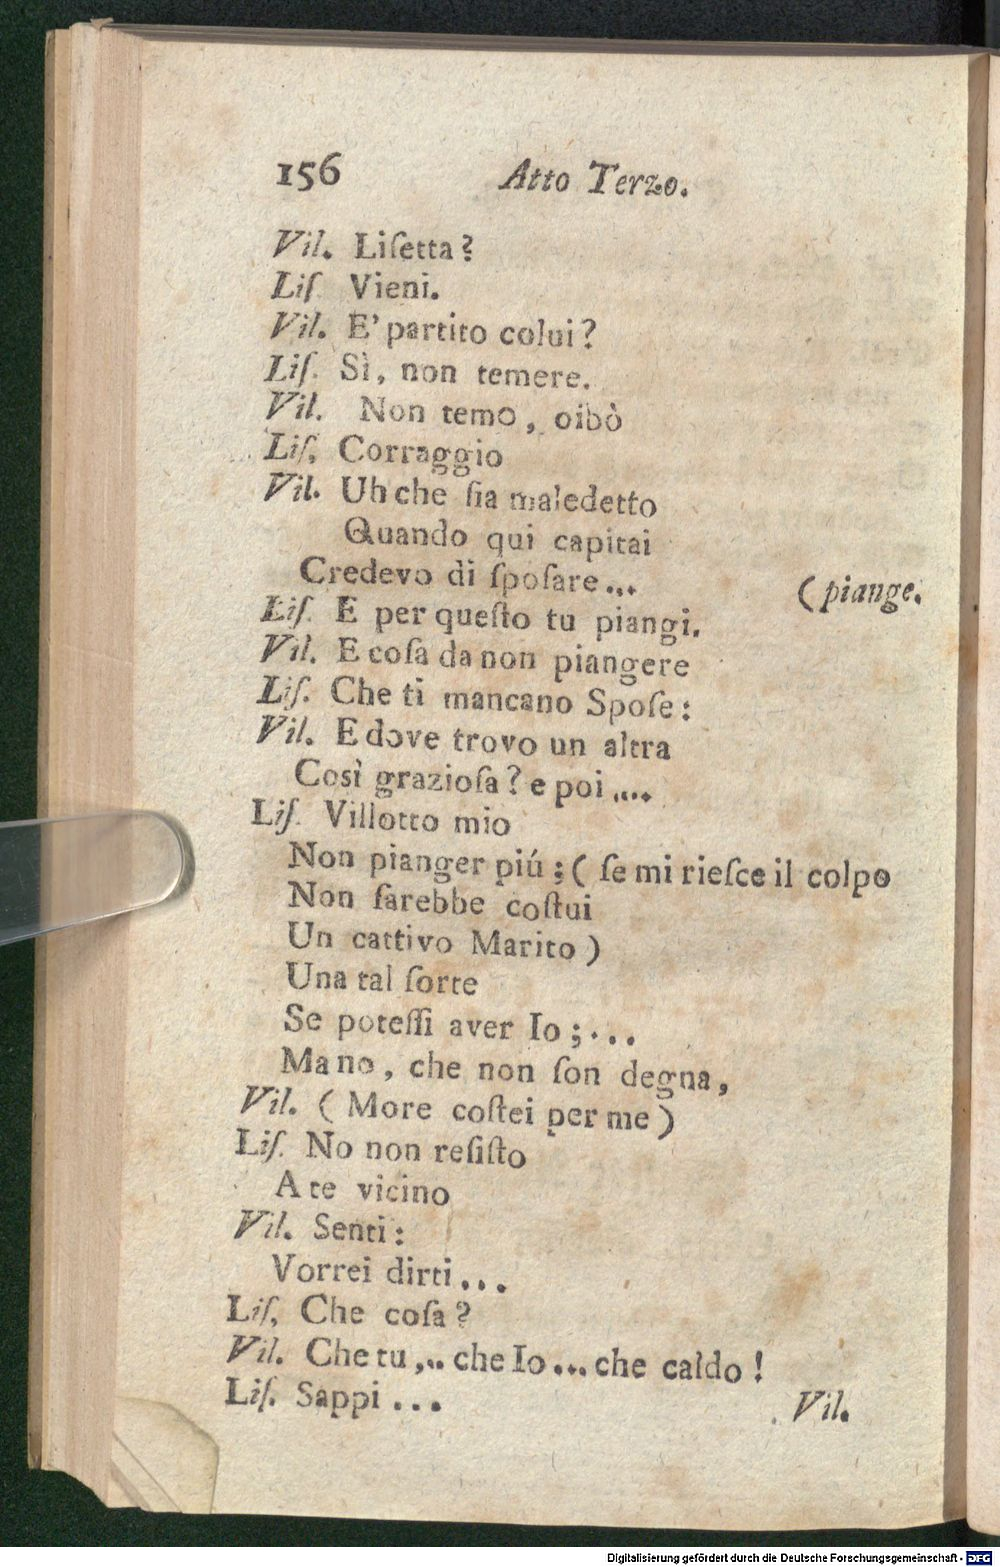 156 Atto Terzo.
Vil. Liſetta?
Liſ Vieni.
Vil. E' partito colui?
Liſ. Sì, non temere.
Vil. Non temo, oibò
Liſ, Corraggio
Vil. Uh che ſia maledetto
Quando qui capitai
Credevo di ſpoſare... (piange.
Liſ. E per queſto tu piangi.
Vil. E coſa da non piangere
Liſ. Che ti mancano Spoſe:
Vil. E dove trovo un altra
Così grazioſa? e poi ....
Liſ. Villotto mio
Non pianger piú; ( ſe mi rieſce il colpo
Non ſarebbe coſtui
Un cattivo Marito )
Una tal ſorte
Se poteſſi aver Io; ...
Ma no, che non ſon degna,
Vil. ( More coſtei per me )
Liſ. No non reſiſto
A te vicino
Vil. Senti:
Vorrei dirti...
Liſ, Che coſa?
Vil. Che tu ,.. che Io... che caldo!
Liſ. Sappi ...
Vil.
Digitalisierung gefördert durch die Deutsche Forschungsgemeinschaft - DFG